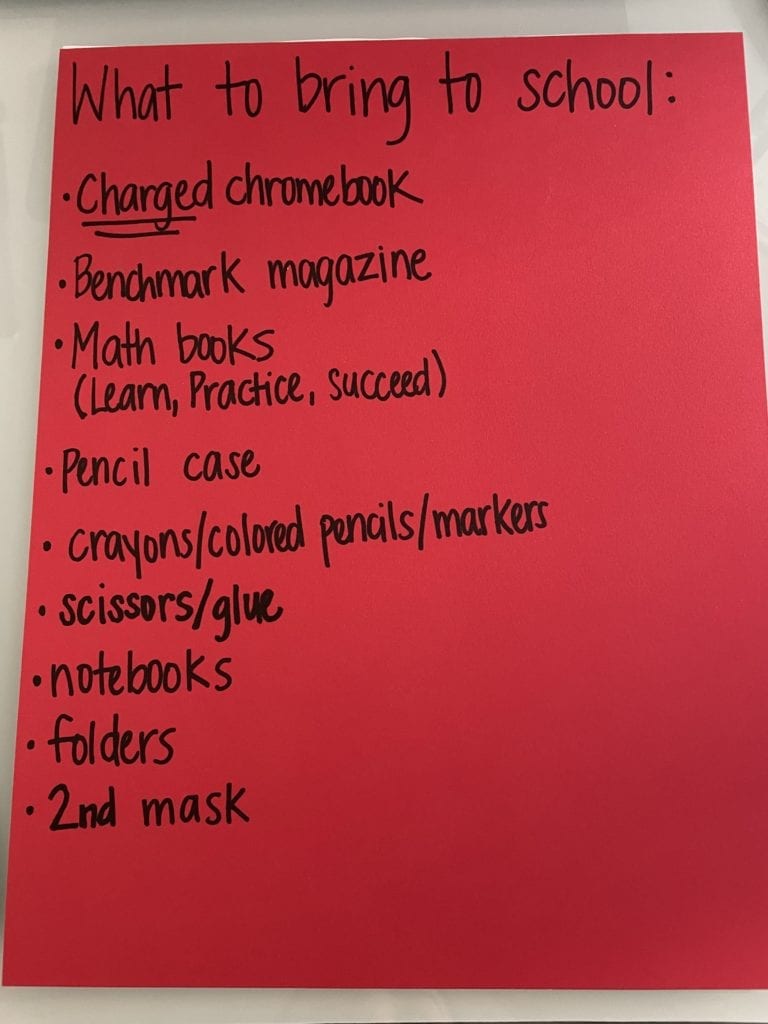 What to bring to school:
• Charged chromebook
• Benchmark magazine
• Math books
(Learn, Practice, Succeed)
• Pencil case
• crayons/colored pencils/markers
• scissors/glue
• notebooks
• folders
• 2nd mask